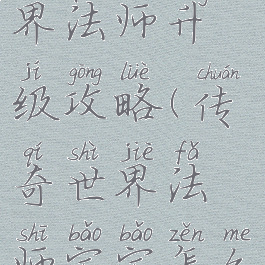 界法师升
jí gōng lüè chuán
级攻略(传
qí shì jiè fǎ
奇世界法
shī bǎo bǎo zěn me
师宝宝怎么